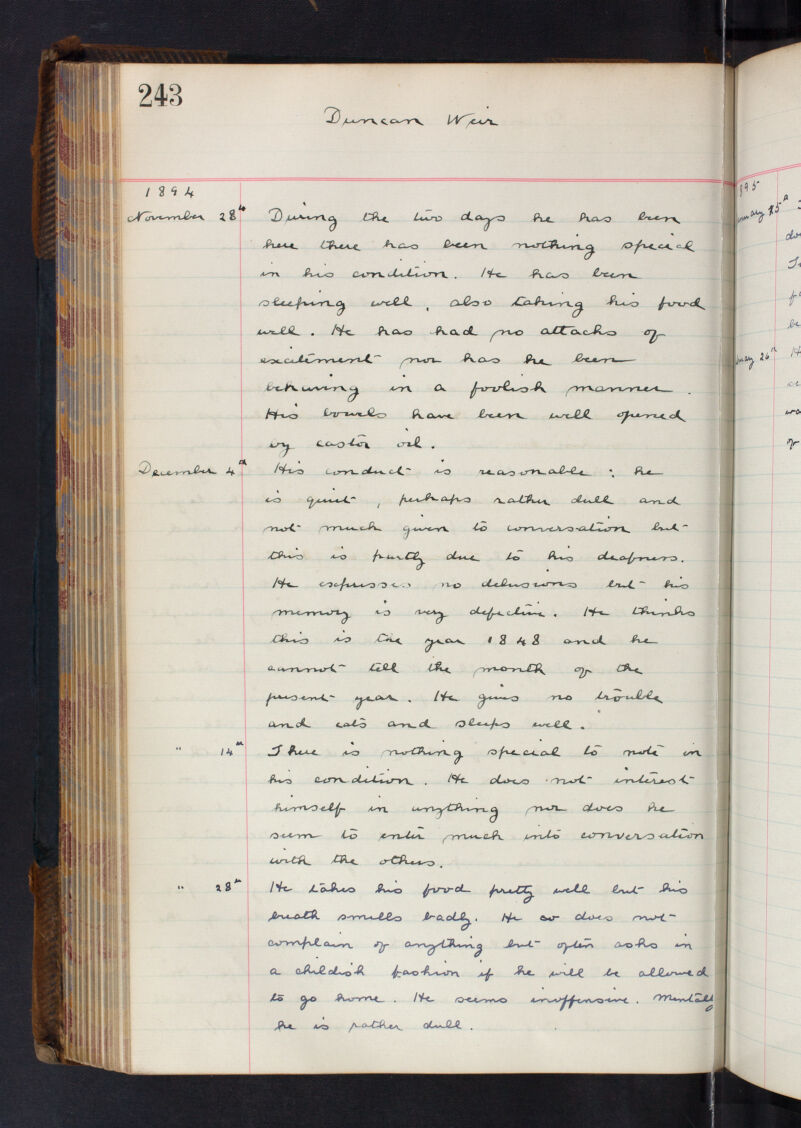 243
Duncan Weir
1894
November 28th During the two days he has been
here there has been nothing special
in his condition. He has been
sleeping well, also taking his food
well. He has had no attacks of
excitement nor has he been
behaving in a foolish manner.
His bowels have been well opened
by castor oil.
December 4th His conduct is reasonable: he
is quiet, perhaps rather dull and
not much given to conversation but
this is partly due to his deafness.
He expresses no delusions but his
memory is very defective. He thinks
this is the year 1848 and he
cannot tell the month of the
present year. He gives no trouble
and eats and sleeps well.
" 14th There is nothing special to note in
his condition. He does not interest
himself in anything nor does he
seem to enter much into conversation
with the others.
" 28th He takes his food pretty well but his
breath smells badly. He does not
complain of anything but often asks in
a childish fashion if he will be allowed
to go home. He seems inoffensive. Mentally
he is rather dull.
895
25th
26th